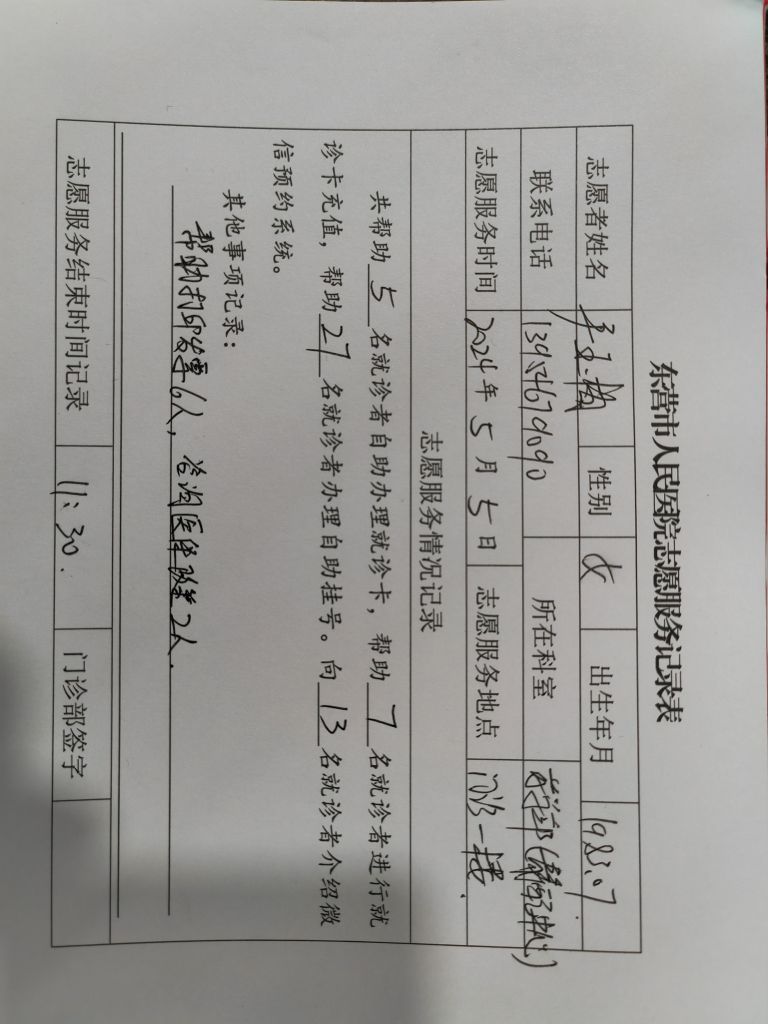 东营市人民医院志愿服务记录表
志愿者姓名 性别 女 出生年月 1983.07
联系电话 13954679090 所在科室
志愿服务时间 2024年5月5日 志愿服务地点 门诊一楼.
志愿服务情况记录
共帮助 5 名就诊者自助办理就诊卡，帮助 7 名就诊者进行就
诊卡充值，帮助 27 名就诊者办理自助挂号。向 13 名就诊者介绍微
信预约系统。
其他事项记录：
帮助打印发票6人，咨询医保政策2人.
志愿服务结束时间记录 11:30. 门诊部签字